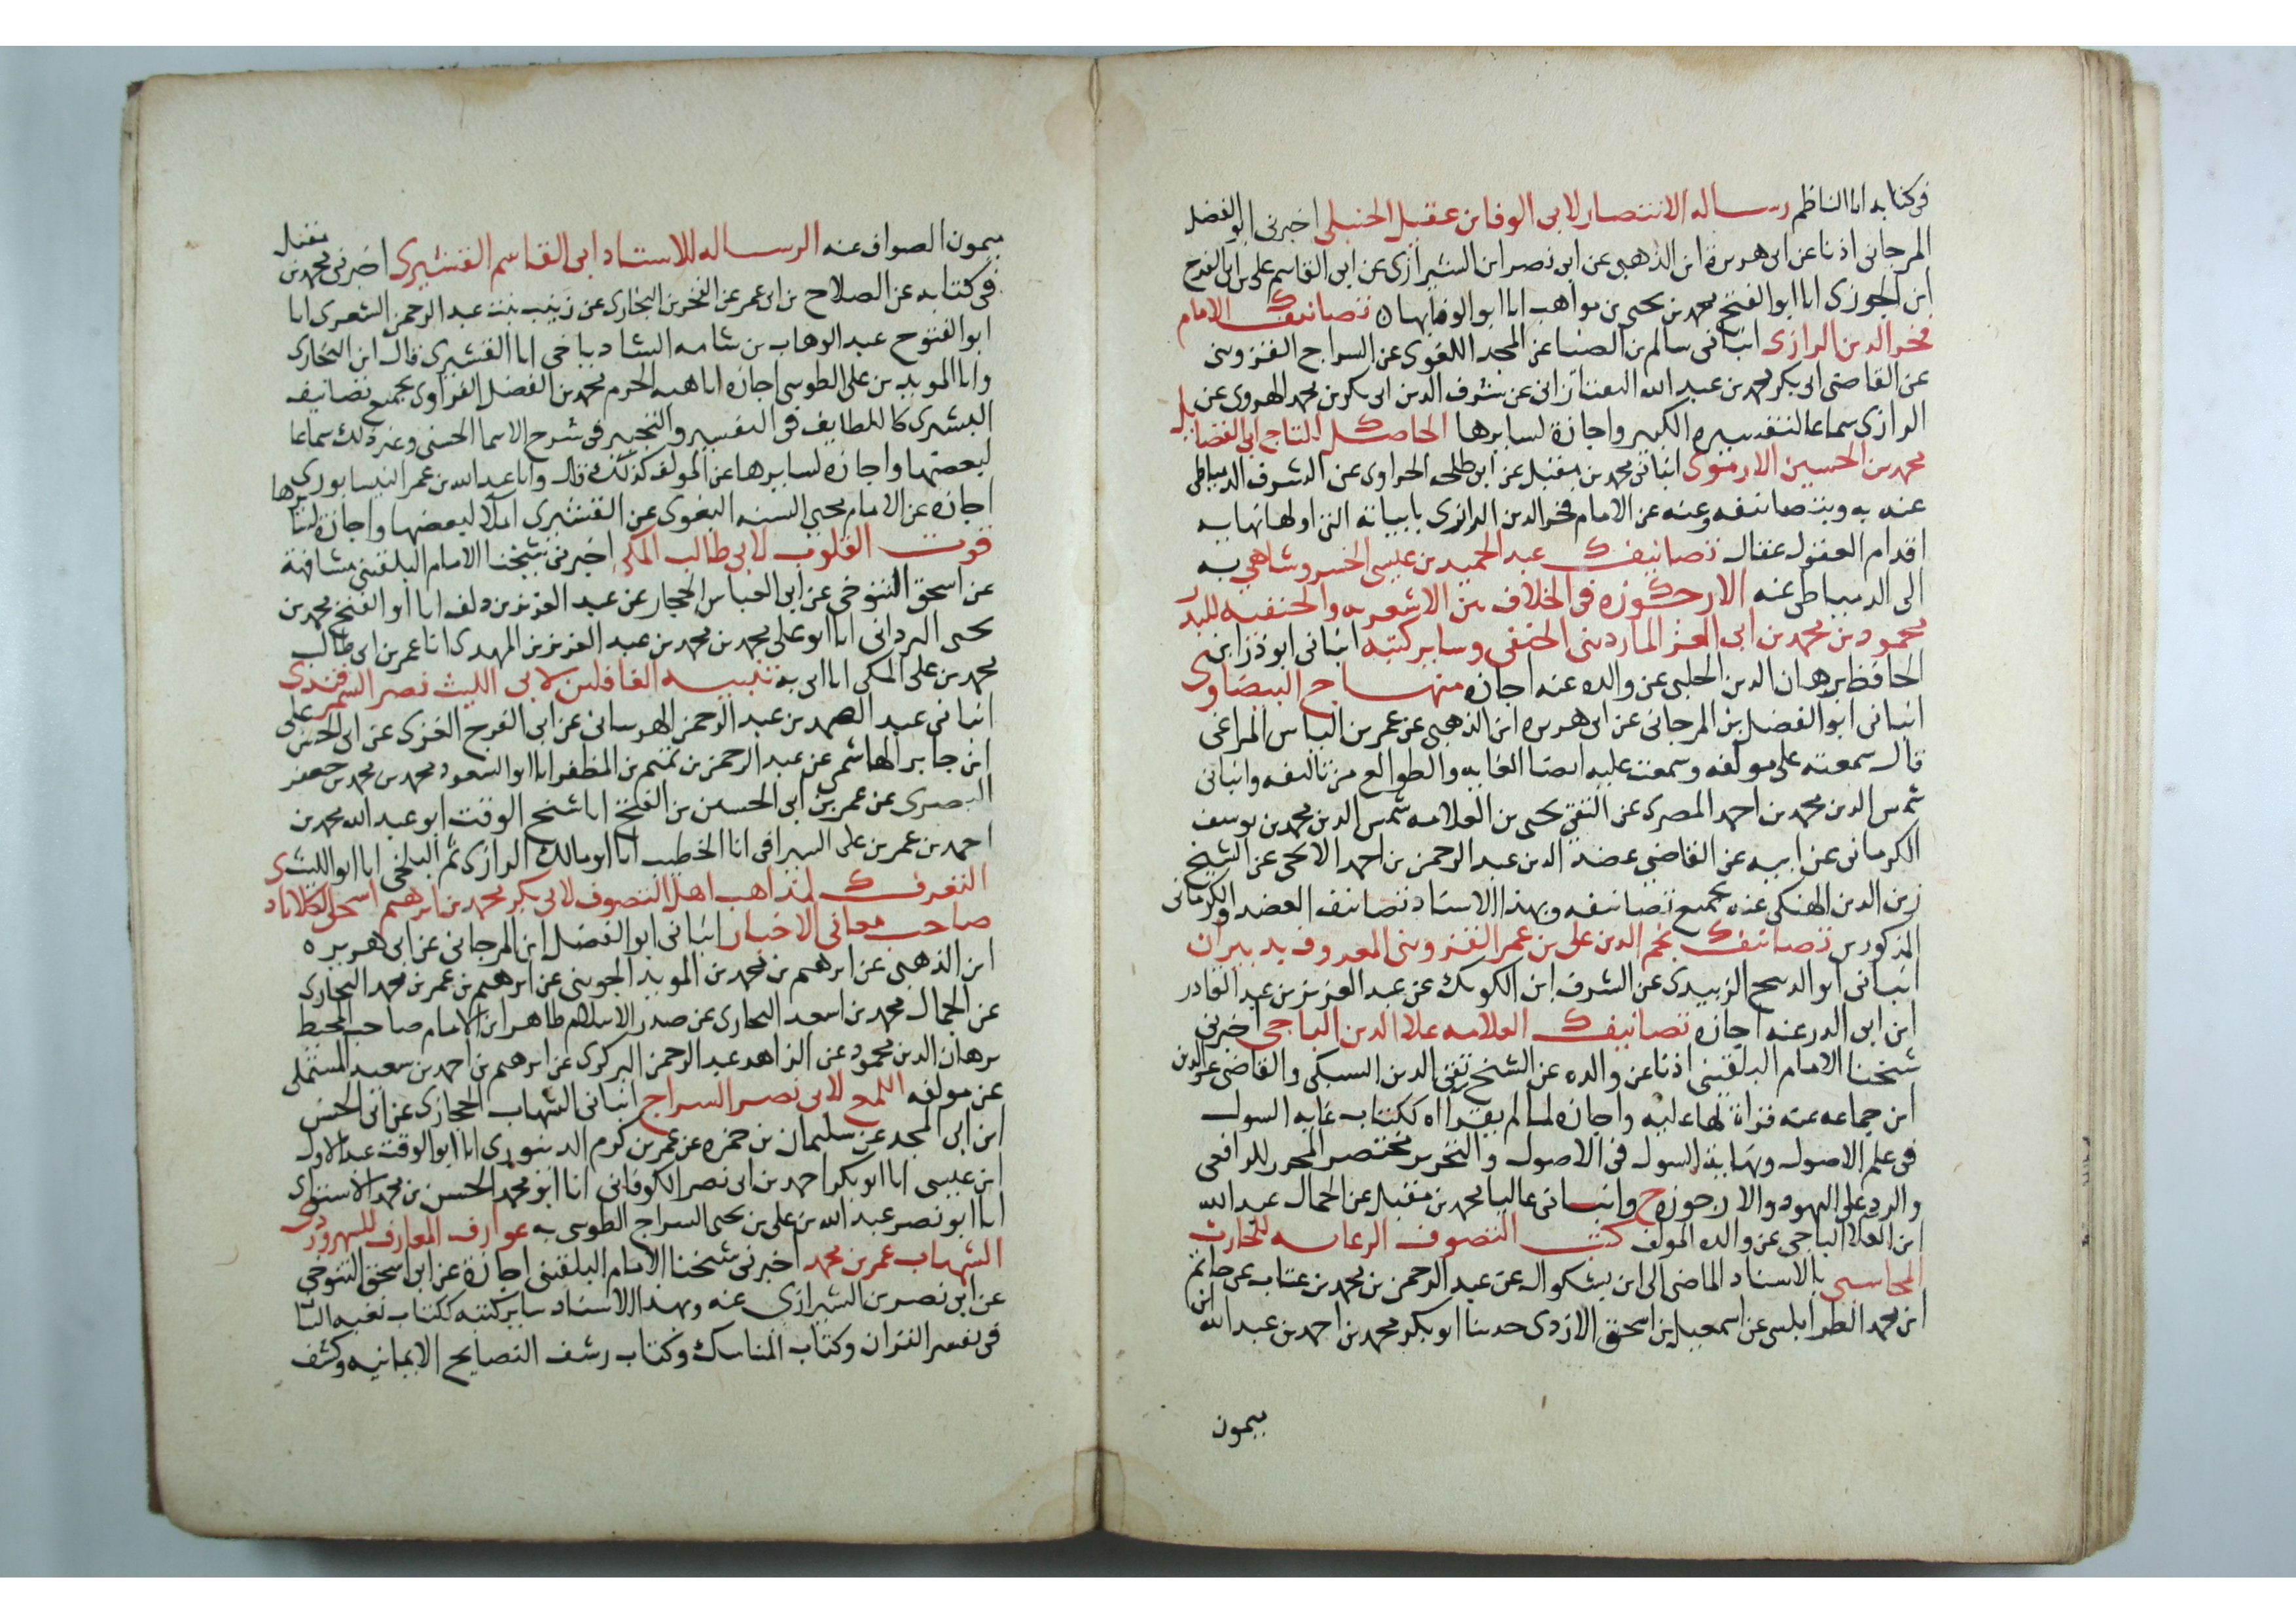 في كتابه انا الناظم رساله الانتصار لابي الوفا بن عقيل الحنبلي اخبرني ابو الفضل
المرجاني اذنا عن ابي هريرة ابن الذهبي عن ابي نصر ابن الشيرازي عن ابي القاسم علي بن ابي الفرج
ابن الجوزي انا ابو الفتح محمد بن يحيى بن مواهب انا ابو الوفا بها تصانيف الامام
فخر الدين الرازي انباني سالم بن الضيا عن المجد اللغوي عن السراج القزويني
عن القاضي ابي بكر محمد بن عبد الله التفتازاني عن شرف الدين ابي بكر بن محمد الهروي عن
الرازي سماعا لتفسيره الكبير واجازة لسايرها الحاصل للتاج ابي الفضايل
محمد بن الحسين الارموي انباني محمد بن مقبل عن ابن طلحه الحراوي عن الشرف الدمياطي
عنه به وبتصانيفه وعنه عن الامام فخر الدين الرازي بابياته التي اولها نهايه
اقدام العقول عقال تصانيف عبد الحميد بن عيسى الخسروشاهي به
الى الدمياطي عنه الارجوزه في الخلاف بين الاشعريه والحنفيه للبدر
محمود بن محمد بن ابي العز المارديني الحنفي وساير كتبه انباني ابو ذر ابن
الحافظ برهان الدين الحلبي عن والده عنه اجازه منهاج البيضاوي
انباني ابو الفضل بن المرجاني عن ابي هريره ابن الذهبي عن عمر بن الياس المراغي
قال سمعته على مولفه وسمعت عليه ايضا الغايه والطوالع من تاليفه وانباني
شمس الدين محمد بن احمد المصري عن التقي يحيى بن العلامه شمس الدين محمد بن يوسف
الكرماني عن ابيه عن القاضي عضد الدين عبد الرحمن بن احمد الايجي عن الشيخ
زين الدين الهنكي عنه بجميع تصانيفه وبهذا الاسناد تصانيف العضد والكرماني
المذكورين تصانيف نجم الدين علي بن عمر القزويني المعروف بدبيران
انباني ابو الربيع الزبيدي عن الشرف ابن الكويك عن عبد العزيز بن عبد القادر
ابن ابي الدر عنه اجازه تصانيف العلامه علا الدين الباجي اخبرني
شيخنا الامام البلقيني اذنا عن والده عن الشيخ تقي الدين السبكي والقاضي عز الدين
ابن جماعه عنه قراة لها عليه واجازه لما لم يقراه ككتاب غايه السول
في علم الاصول ونهاية السول في الاصول والتحرير مختصر المحرر للرافعي
والرد على اليهود والارجوزه ح وانباني عاليا محمد بن مقبل عن الجمال عبد الله
ابن العلا الباجي عن والده المولف كتب التصوف الرعايه للحارث
المحاسبي بالاسناد الماضي الى ابن بشكوال عن عبد الرحمن بن محمد بن عتاب عن حاتم
ابن محمد الطرابلسي عن اسمعيل بن اسحق الازدي حدثنا ابو بكر محمد بن احمد بن عبد الله ابن
ميمون
ميمون الصواف عنه الرساله للاستاد ابي القاسم القشيري اخبرني محمد بن مقبل
في كتابه عن الصلاح بن ابي عمر عن الفخر بن البخاري عن زينب بنت عبد الرحمن الشعري انا
ابو الفتوح عبد الوهاب بن شاه الشادياخي انا القشيري قال ابن البخاري
وانا المويد بن علي الطوسي اجازه انا هبه الحرم محمد بن الفضل الفراوي بجميع تصانيف
القشيري كاللطايف في التفسير والتحبير في شرح الاسما الحسنى وغير ذلك سماعا
لبعضها واجازه لسايرها عن المولف كذلك قال وانا عبد الله بن عمر النيسابوري
اجازه عن الامام محيي السنه البغوي عن القشيري املا لبعضها واجازة لسايرها
قوت القلوب لابي طالب المكي اخبرني شيخنا الامام البلقيني مشافهة
عن اسحق التنوخي عن ابي العباس الحجار عن عبد العزيز بن دلف انا ابو الفتح محمد بن
يحيى البرداني انا ابو علي محمد بن محمد بن عبد العزيز بن المهدي انا عمر بن ابي طالب
محمد بن علي المكي انا ابي به تنبيه الغافلين لابي الليث نصر السمرقندي
انباني عبد الصمد بن عبد الرحمن الهرساني عن ابي الفرج الغزي عن ابي الحسن علي
ابن جابر الهاشمي عن عبد الرحمن بن تميم بن المظفر انا ابو السعود محمد بن محمد بن جعفر
البصري عن عمر بن ابي الحسين بن الفتح انا شيخ الوقت ابو عبد الله محمد بن
احمد بن عمر بن علي السيرافي انا الخطيب انا ابو مالك الرازي ثم البلخي انا ابو الليث
التعرف لمذاهب اهل التصوف لابي بكر محمد بن ابرهيم اسحق الكلاباذي
صاحب معاني الاخبار انباني ابو الفضل ابن المرجاني عن ابي هريره
ابن الذهبي عن ابرهيم بن محمد بن المويد الجويني عن ابرهيم بن عمر بن محمد البخاري
عن الجمال محمد بن اسعد البخاري عن صدر الاسلام طاهر ابن الامام صاحب المحيط
برهان الدين محمود عن الزاهد عبد الرحمن البركري عن ابرهيم بن احمد بن سعيد المستملي
عن مولفه اللمع لابي نصر السراج انباني الشهاب الحجازي عن ابي الحسن
ابن ابي المجد عن سليمان بن حمزه عن عمر بن كرم الدينوري انا ابو الوقت عبد الاول
ابن عيسى انا ابو بكر احمد بن ابي نصر الكوفاني انا ابو محمد الحسن بن محمد
انا ابو نصر عبد الله بن علي بن يحيى السراج الطوسي به عوارف المعارف للسهروردي
الشهاب عمر بن محمد اخبرني شيخنا الامام البلقيني اجازة عن ابي اسحق التنوخي
عن ابي نصر بن الشيرازي عنه وبهذا الاسناد ساير كتبه ككتاب نغبه البيان
في تفسير القران وكتاب المناسك وكتاب رشف النصايح الايمانيه وكشف